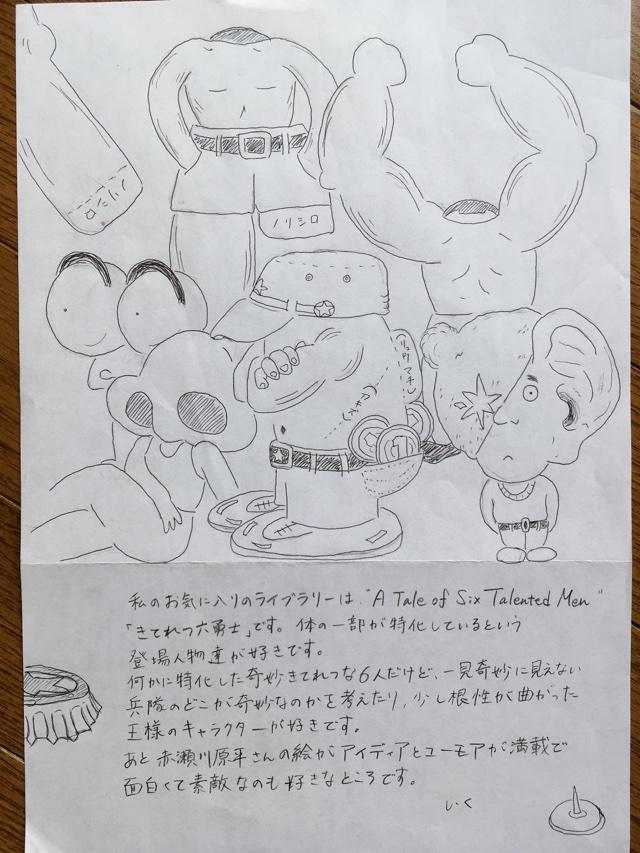 ノリシロ
ノリシロ
リウマチ
私のお気に入りのライブラリーは、"A Tale of Six Talented Men"
「きてれつ六勇士」です。体の一部が特化しているという
登場人物達が好きです。
何かに特化した奇妙きてれつな6人だけど、一見奇妙に見えない
兵隊のどこが奇妙なのかを考えたり、少し根性が曲がった
王様のキャラクターが好きです。
あと赤瀬川原平さんの絵がアイディアとユーモアが満載で
面白くて素敵なのも好きなところです。
いく